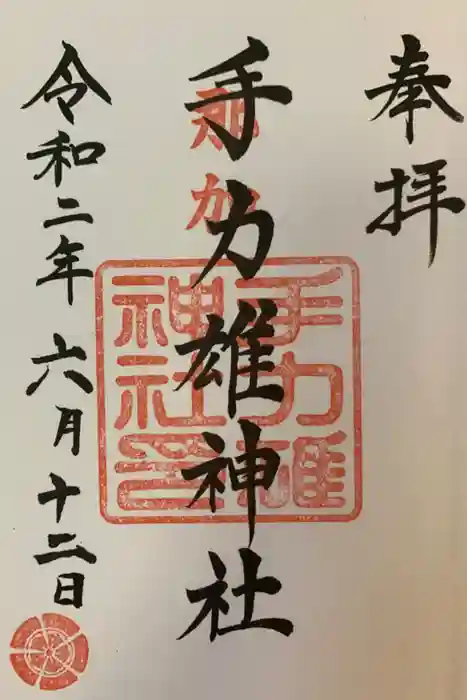 奉拝
那加
手力雄神社
手力雄
神社印
令和二年六月十二日